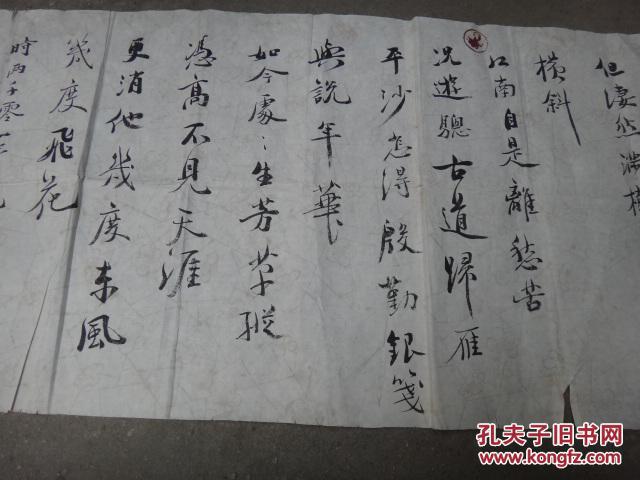 但淒然滿
橫斜
江南自是離愁苦
況遊驄古道歸雁
平沙怎得殷勤銀箋
與說年華
如今處〻生芳草縱
憑高不見天涯
更消他幾度東風
幾度飛花
時丙子零
孔夫子旧书网
KONGFZ.COM